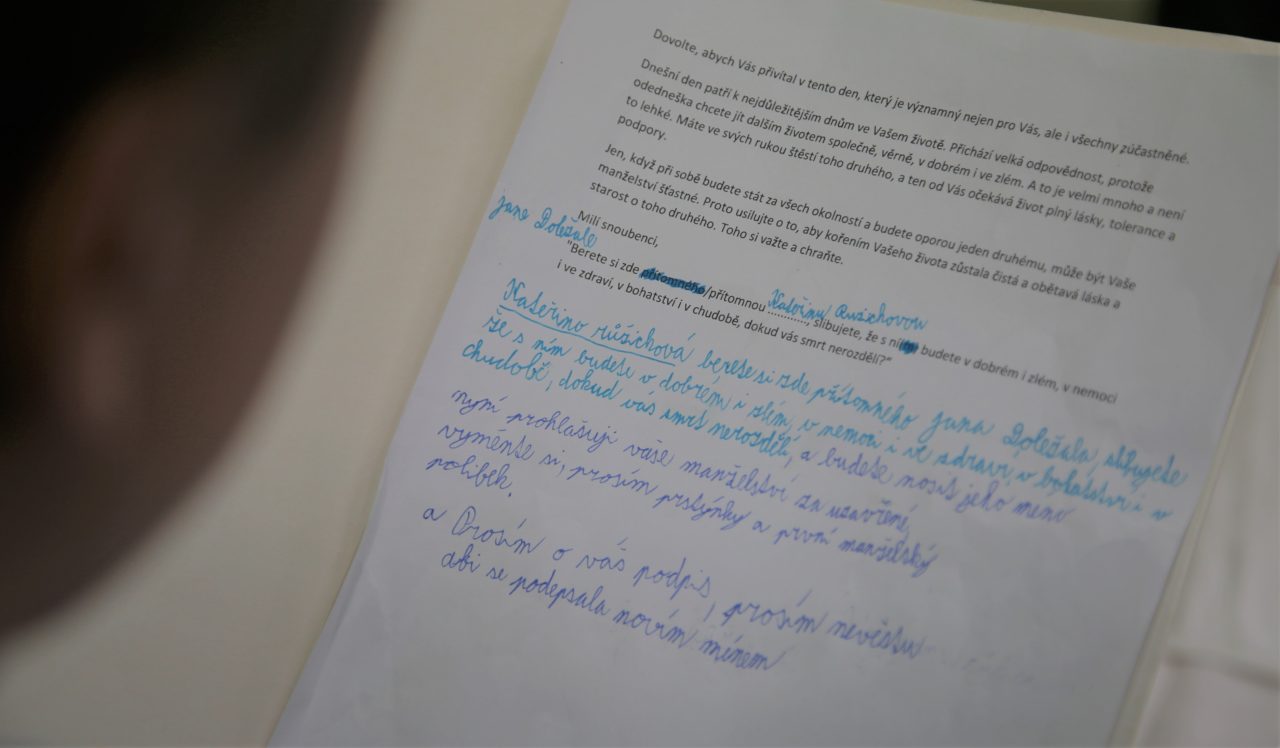 Dovolte, abych Vás přivítal v tento den, který je významný nejen pro Vás, ale i všechny zúčastněné.
Dnešní den patří k nejdůležitějším dnům ve Vašem životě. Přichází velká odpovědnost, protože
odedneška chcete jít dalším životem společně, věrně, v dobrém i ve zlém. A to je velmi mnoho a není
to lehké. Máte ve svých rukou štěstí toho druhého, a ten od Vás očekává život plný lásky, tolerance a
podpory.
Jen, když při sobě budete stát za všech okolností a budete oporou jeden druhému, může být Vaše
manželství šťastné. Proto usilujte o to, aby kořením Vašeho života zůstala čistá a obětavá láska a
starost o toho druhého. Toho si važte a chraňte.
Milí snoubenci,
jane Doležale
"Berete si zde přítomného/přítomnou Kateřinu Růžichovou, slibujete, že s ní budete v dobrém i zlém, v nemoci
i ve zdraví, v bohatství i v chudobě, dokud vás smrt nerozdělí?"
Kateřino růžichová berete si zde přítomného jana Doležala, slibujete
že s ním budete v dobrém i zlém, v nemoci i ve zdraví, v bohatství i v
chudobě, dokud vás smrt nerozdělí, a budete nosit jeho meno
nyní prohlašuji vaše manželství za uzavřené,
vyměnte si, prosím prstýnky a první manželský
polibek.
a Prosím o váš podpis, prosím nevěstu
abi se podepsala novím ménem